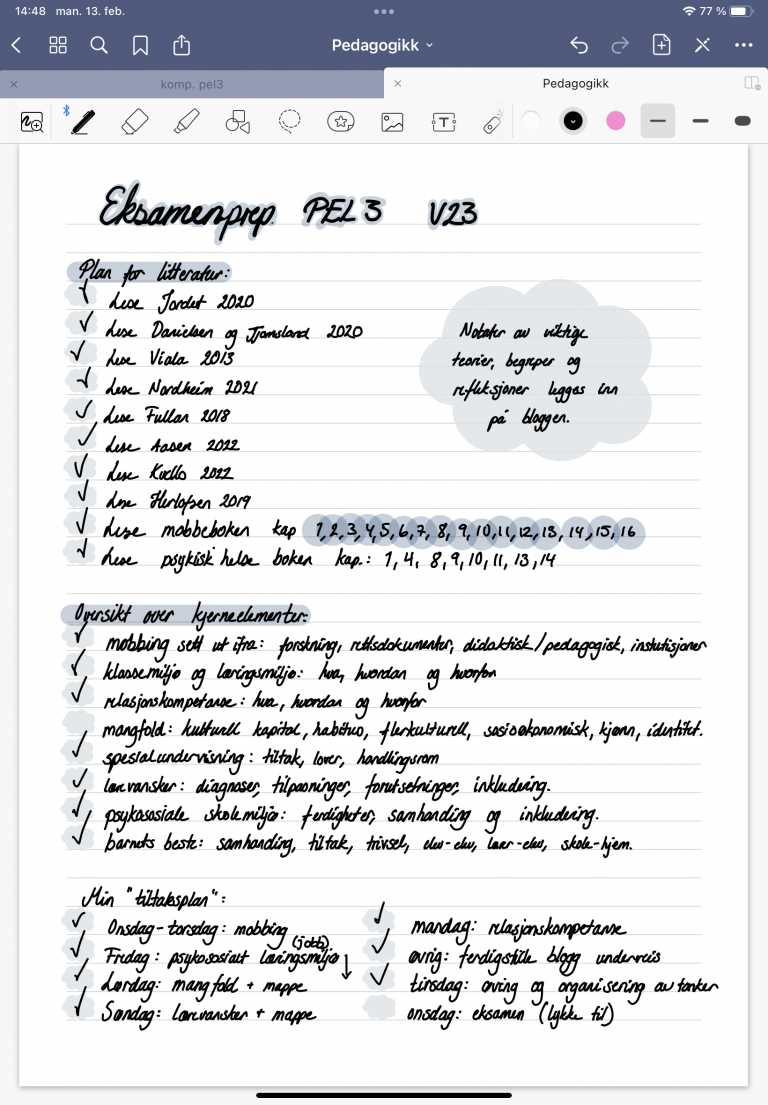 14:48 man. 13. feb.
77 %
Pedagogikk
komp. pel3
Pedagogikk
Eksamenprep. PEL 3 V23
Plan for litteratur:
Lese Jordet 2020
Lese Danielsen og Tjomsland 2020
Lese Viala 2013
Lese Nordheim 2021
Lese Fullan 2018
Lese Aasen 2022
Lese Kvello 2022
Lese Herlofsen 2019
Lese mobbeboken kap 1, 2, 3, 4, 5, 6, 7, 8, 9, 10, 11, 12, 13, 14, 15, 16
Lese psykisk helse boken kap.: 1, 4, 8, 9, 10, 11, 13, 14
Notater av viktige
teorier, begreper og
refleksjoner legges inn
på bloggen.
Oversikt over kjerneelementer:
mobbing sett ut ifra: forskning, rettsdokumenter, didaktisk/pedagogisk, instutisjoner
klassemiljø og læringsmiljø: hva, hvordan og hvorfor
relasjonskompetanse: hva, hvordan og hvorfor
mangfold: kulturell kapital, habitus, flerkulturell, sosioøkonomisk, kjønn, identitet.
spesialundervisning: tiltak, lover, handlingsrom
lærevansker: diagnoser, tilpasninger, forutsetninger, inkludering.
psykososiale skolemiljø: ferdigheter, samhandling og inkludering.
barnets beste: samhandling, tiltak, trivsel, elev-elev, lærer-elev, skole-hjem.
Min "tiltaksplan":
Onsdag-torsdag: mobbing
Fredag: psykososialt læringsmiljø (jobb)
Lørdag: mangfold + mappe
Søndag: lærevansker + mappe
mandag: relasjonskompetanse
øvrig: ferdigstille blogg underveis
tirsdag: øving og organisering av tanker
onsdag: eksamen (lykke til)